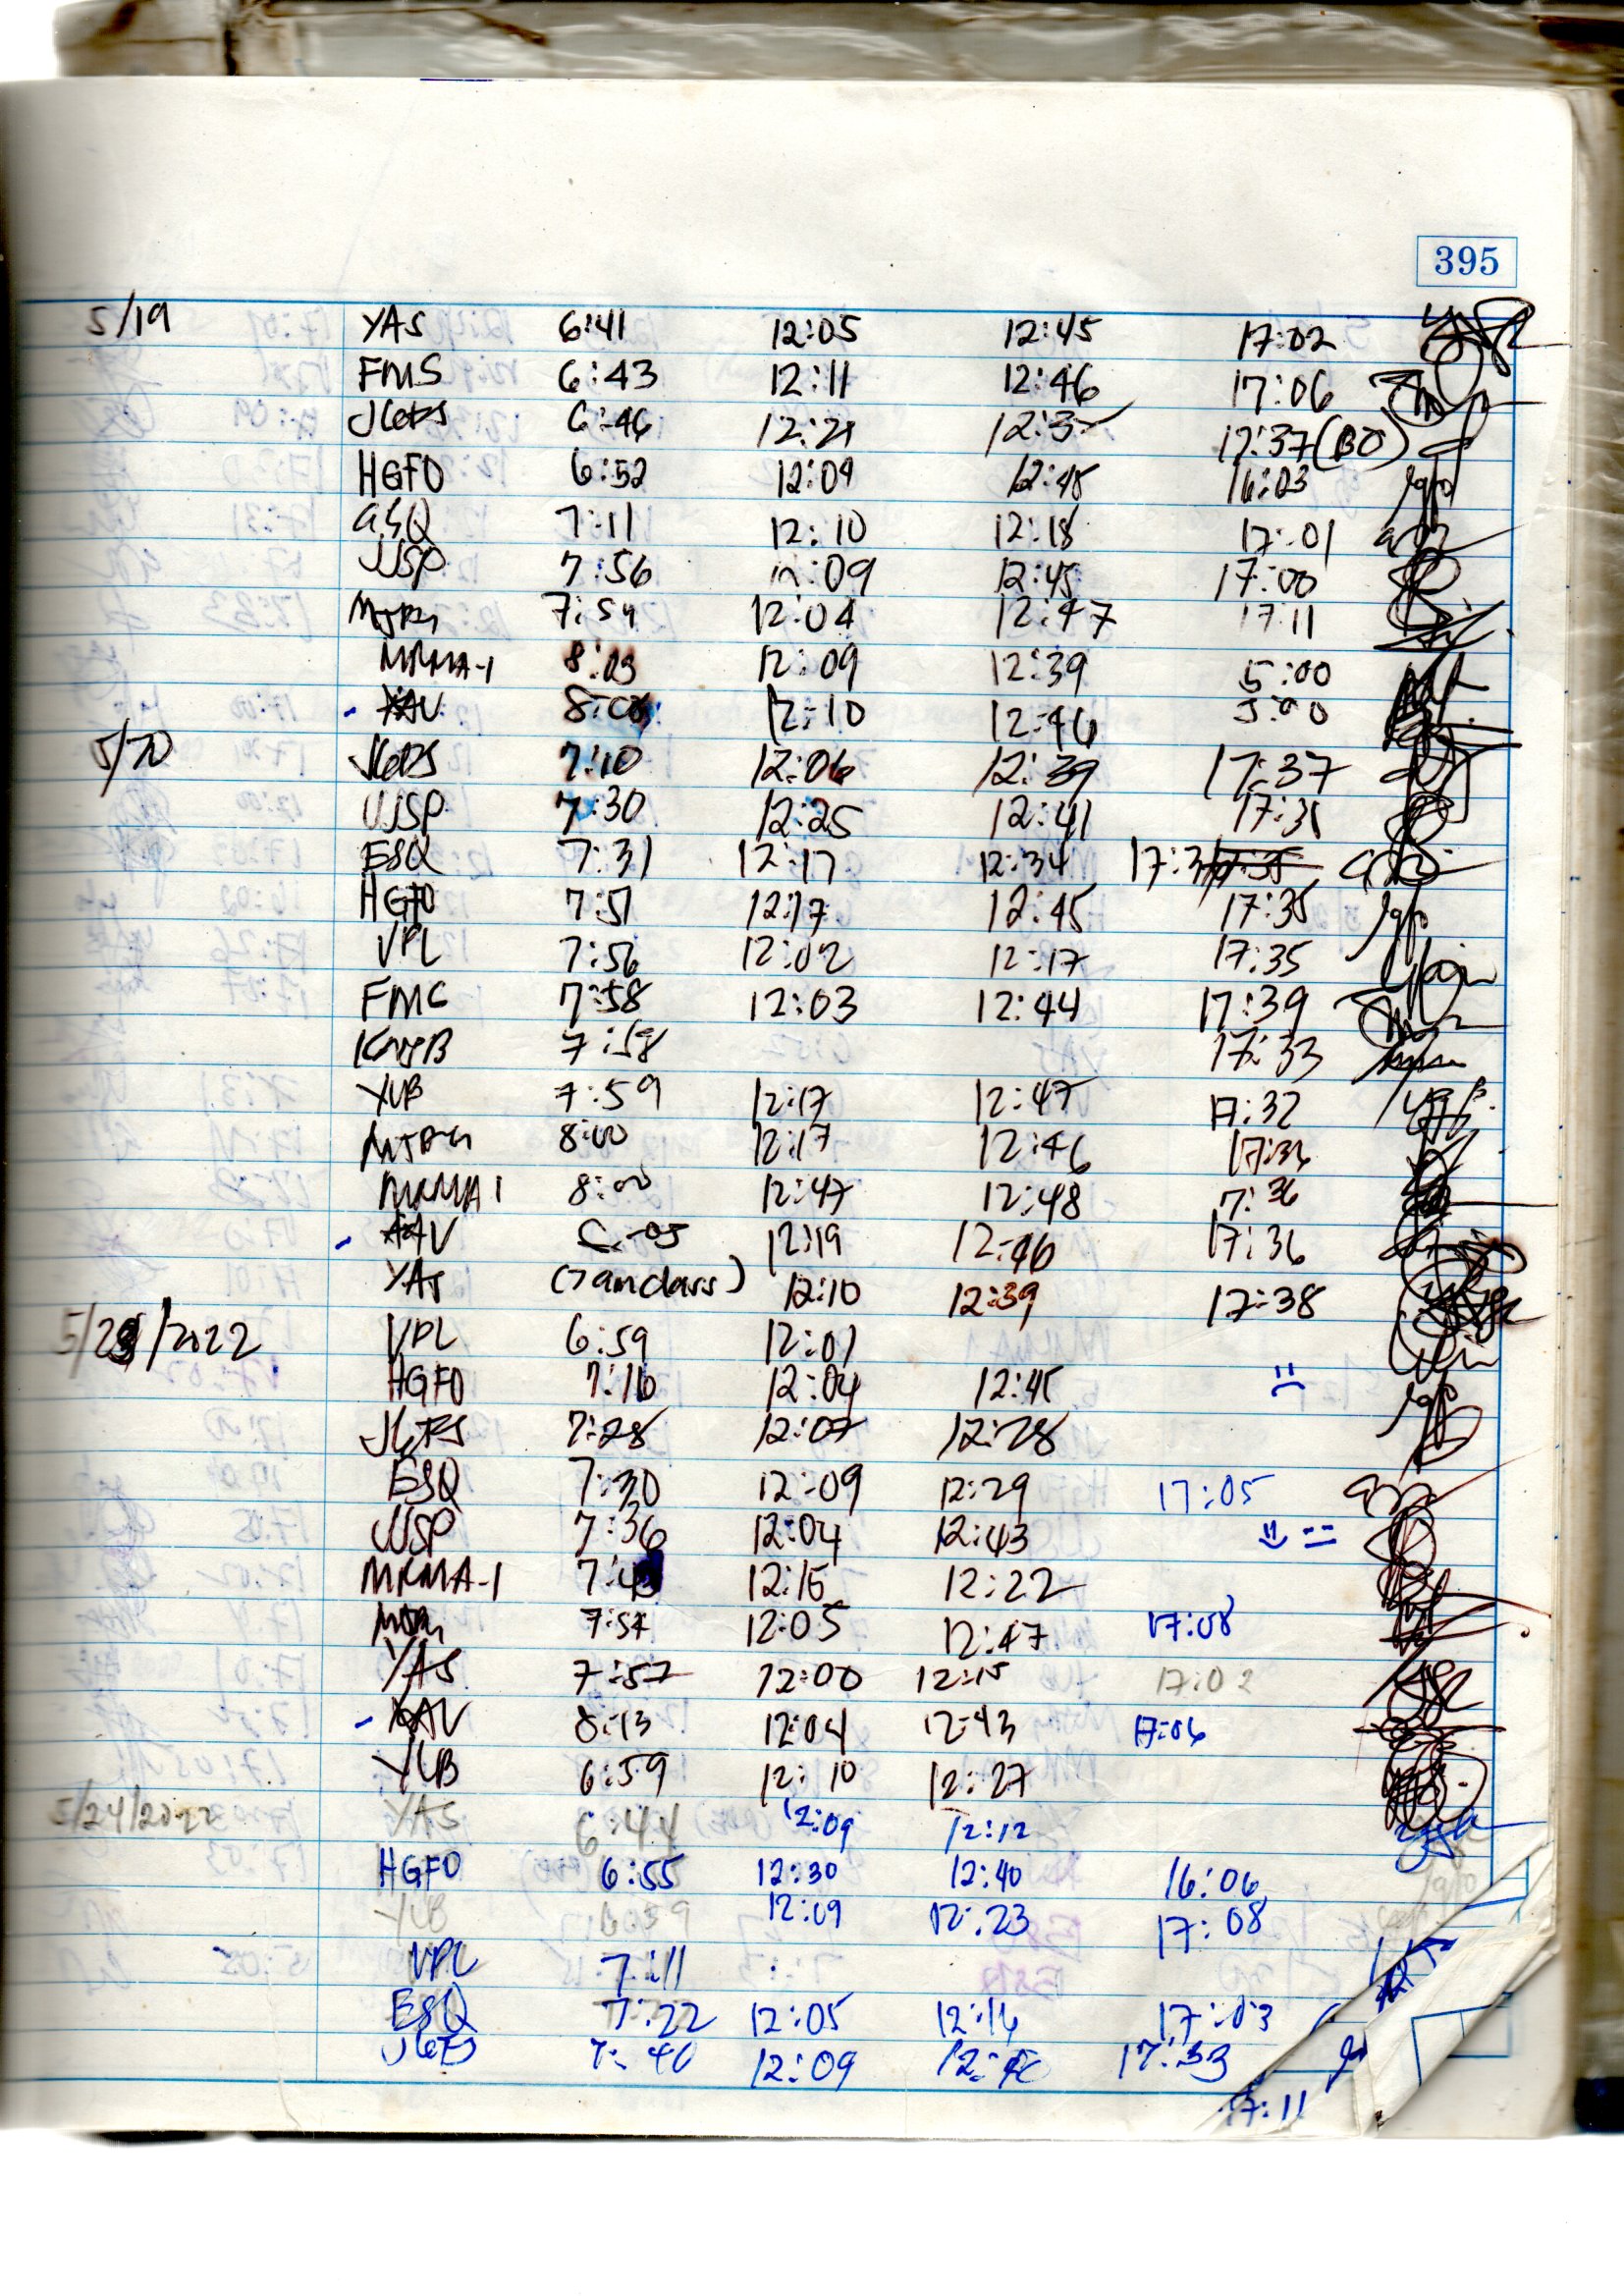 395
5/19 YAS 6:41 12:05 12:45 17:02
FMS 6:43 12:11 12:46 17:06
6:46 12:21 17:37 (BO)
HGFO 6:52 12:09 12:45 16:03
ESQ 7:11 12:10 12:18 17:01
JJSP 7:56 12:09 12:45 17:00
7:59 12:04 12:47 17:11
MRMA-1 8:03 12:09 12:39 5:00
12:10 12:46 5:00
5/20 7:10 12:06 12:39 17:37
JJSP 7:30 12:25 12:41
ESQ 7:31 12:17 12:34
HGFO 7:51 12:17 12:45 17:35
VPL 7:56 12:02 12:17 17:35
FMS 7:58 12:03 12:44 17:39
7:58 17:33
YUB 7:59 12:17 12:47 17:32
8:00 12:17 12:46
MRMA 1 8:00 12:47 12:48 7:36
12:19 12:46 17:36
YAS (7am class) 12:10 12:39 17:38
5/23/2022 VPL 6:59 12:01
HGFO 7:16 12:04 12:45
7:28 12:07 12:28
ESQ 7:30 12:09 12:29 17:05
JJSP 7:36 12:04 12:43
MRMA-1 12:15 12:22
12:05 12:47 17:08
YAS 7:57 12:00 12:15 17:02
8:13 12:04 12:43 17:06
YUB 6:59 12:10 12:27
5/24/2022 YAS 6:44 12:09 12:12
HGFO 6:55 12:30 12:40 16:06
YUB 6:59 12:09 12:23 17:08
VPL 7:11
ESQ 7:22 12:05 12:14 17:03
7:40 12:09 17:33
17:11